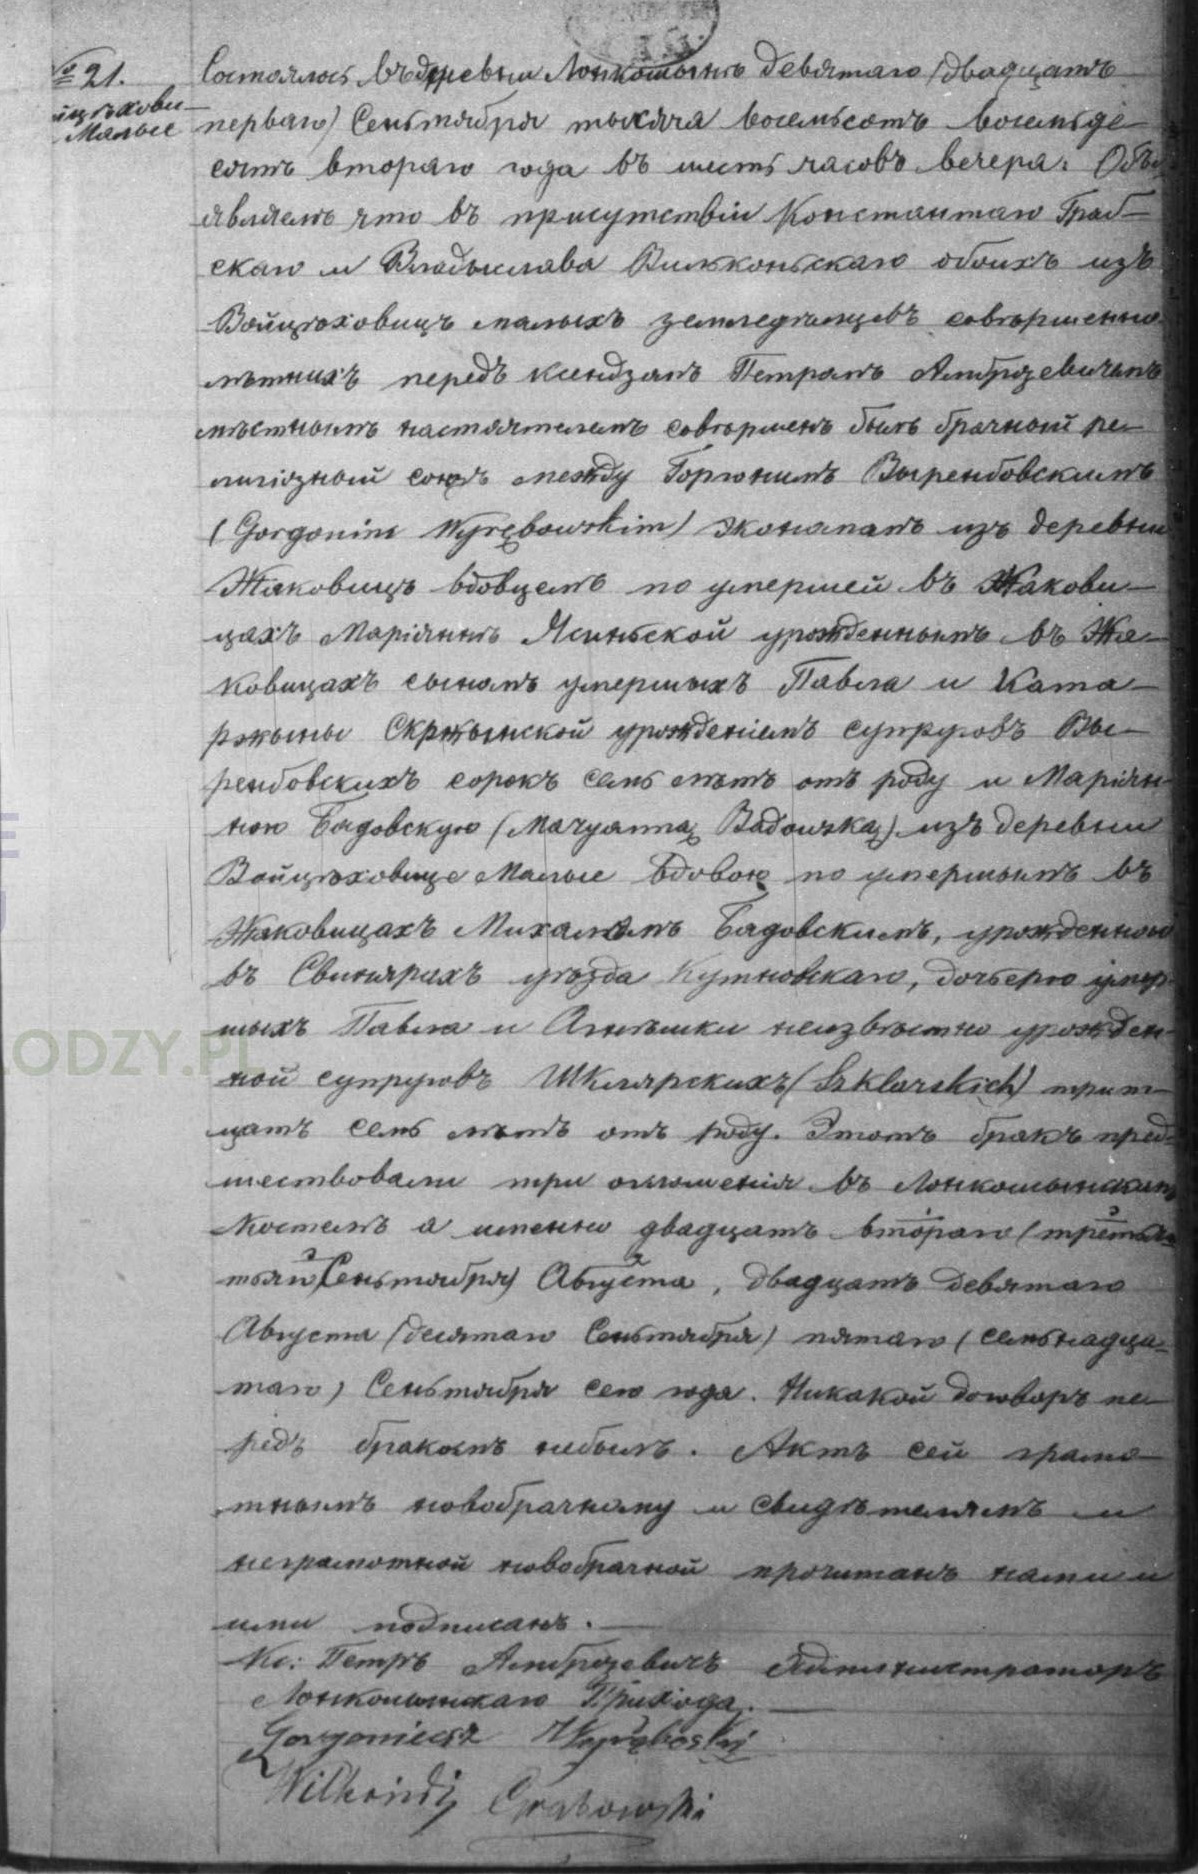 № 21.
Малые
Состоялось въ деревни Лонкошинъ девятаго (двадцать
перваго) Сентября тысяча восемьсотъ восемьде-
сятъ втораго года въ шесть часовъ вечера: Объ
являемъ что въ присутствіи Константаго Граб-
скаго и Владыслава Вильконьскаго обоихъ изъ
Войцѣховицъ малыхъ земледѣльцевъ совершенно
лѣтнихъ передъ ксендзамъ Петрамъ Амброзевичемъ
мѣстнымъ настоятелемъ совершенъ былъ брачный ре-
лигіозный союзъ между Горгонимъ Выренбовскимъ
(Gorgonim Wyrębowskim) экономамъ изъ деревни
Жаковицъ вдовцемъ по умершей въ Жакови-
цахъ Маріяннѣ Ясиньской урожденнымъ въ Жа-
ковицахъ сыномъ умершихъ Павла и Ката-
ржыны Скржынской урожденіемъ супруговъ Вы-
ренбовскихъ сорокъ семь лѣтъ отъ роду и Маріян-
ною Бадовскую (Maryanną Badowską) изъ деревни
Войцѣховице Малые вдовою по умершымъ въ
Жаковицахъ Михалѣмъ Бадовскимъ, урожденною
въ Свинярахъ уѣзда Кутновскаго, дочерью умер-
шихъ Павла и Агнѣшки неизвѣстно урожден-
ной супруговъ Шклярскихъ (Szklarskich) трит-
цать семь лѣтъ отъ роду. Этотъ бракъ пред-
шествовали три оглошенія въ Лонкошинскимъ
Костелѣ а именно двадцать втораго (третья
тьяго Сентября) Августа, двадцать девятаго
Августа (десятаго Сентября) пятаго (семьнадца-
таго) Сентября сего года. Никакой договоръ пе-
редъ бракомъ небылъ. Актъ сей грамо-
тнымъ новобрачному и свидѣтелямъ и
неграмотной новобрачной прочитанъ нами и
ими подписанъ. —
Кс: Петръ Амброзевичъ Администраторъ
Лонкошинскаго Прихода. —
Gorgoniusz Wyręboski
Wilkoński Grabowski